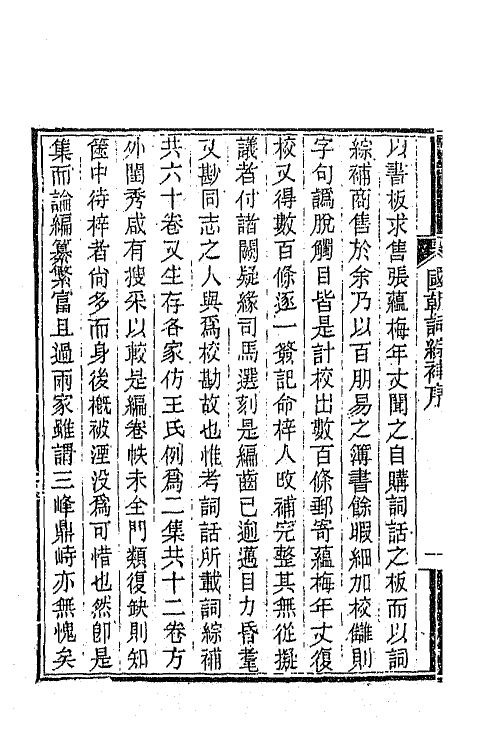 國朝詞綜補序
一
以書板求售張蘊梅年丈聞之自購詞話之板而以詞
綜補商售於余乃以百朋易之簿書餘暇細加校讎則
字句譌脫觸目皆是計校出數百條郵寄蘊梅年丈復
校又得數百條逐一簽記命梓人改補完整其無從擬
議者付諸闕疑緣司馬選刻是編齒已逾邁目力昏耄
又尟同志之人與爲校勘故也惟考詞話所載詞綜補
共六十卷又生存各家仿王氏例爲二集共十二卷方
外閨秀咸有搜采以較是編卷帙未全門類復缺則知
篋中待梓者尙多而身後槪被湮没爲可惜也然卽是
集而論編纂繁富且過兩家雖謂三峰鼎峙亦無愧矣